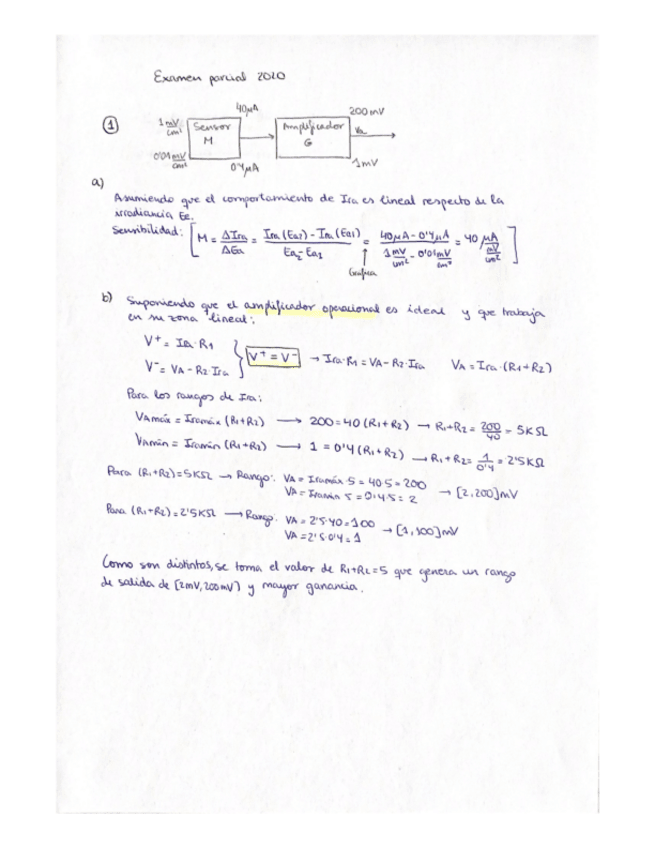 Examen parcial 2020
①
1 mV/cm² Sensor M 40μA Amplificador G 200mV
Va
0'01 mV/cm² 0'4μA 1mV
a)
Asumiendo que el comportamiento de Ira es lineal respecto de la
irradiancia Ee.
Sensibilidad: [M = ΔIra/ΔEa = (Ira(Ea2) - Ira(Ea1))/(Ea2 - Ea1) = (40μA - 0'4μA)/(1 mV/cm² - 0'01 mV/cm²) = 40 μA/(mV/cm²)]
↑
Grafica
b) Suponiendo que el amplificador operacional es ideal y que trabaja
en su zona lineal:
V⁺ = Ira·R1
V⁻ = VA - R2·Ira } V⁺ = V⁻ → Ira·R1 = VA - R2·Ira VA = Ira·(R1+R2)
Para los rangos de Ira:
VAmáx = Iramáx (R1+R2) → 200 = 40 (R1+R2) → R1+R2 = 200/40 = 5KΩ
VAmin = Iramín (R1+R2) → 1 = 0'4 (R1+R2) → R1+R2 = 1/0'4 = 2'5KΩ
Para (R1+R2)=5KΩ → Rango: VA = Iramáx·5 = 40·5 = 200
VA = Iramin·5 = 0'4·5 = 2 → [2,200]mV
Para (R1+R2)=2'5KΩ → Rango: VA = 2'5·40 = 100
VA = 2'5·0'4 = 1 → [1,100]mV
Como son distintos, se toma el valor de R1+R2=5 que genera un rango
de salida de [2mV,200mV) y mayor ganancia.